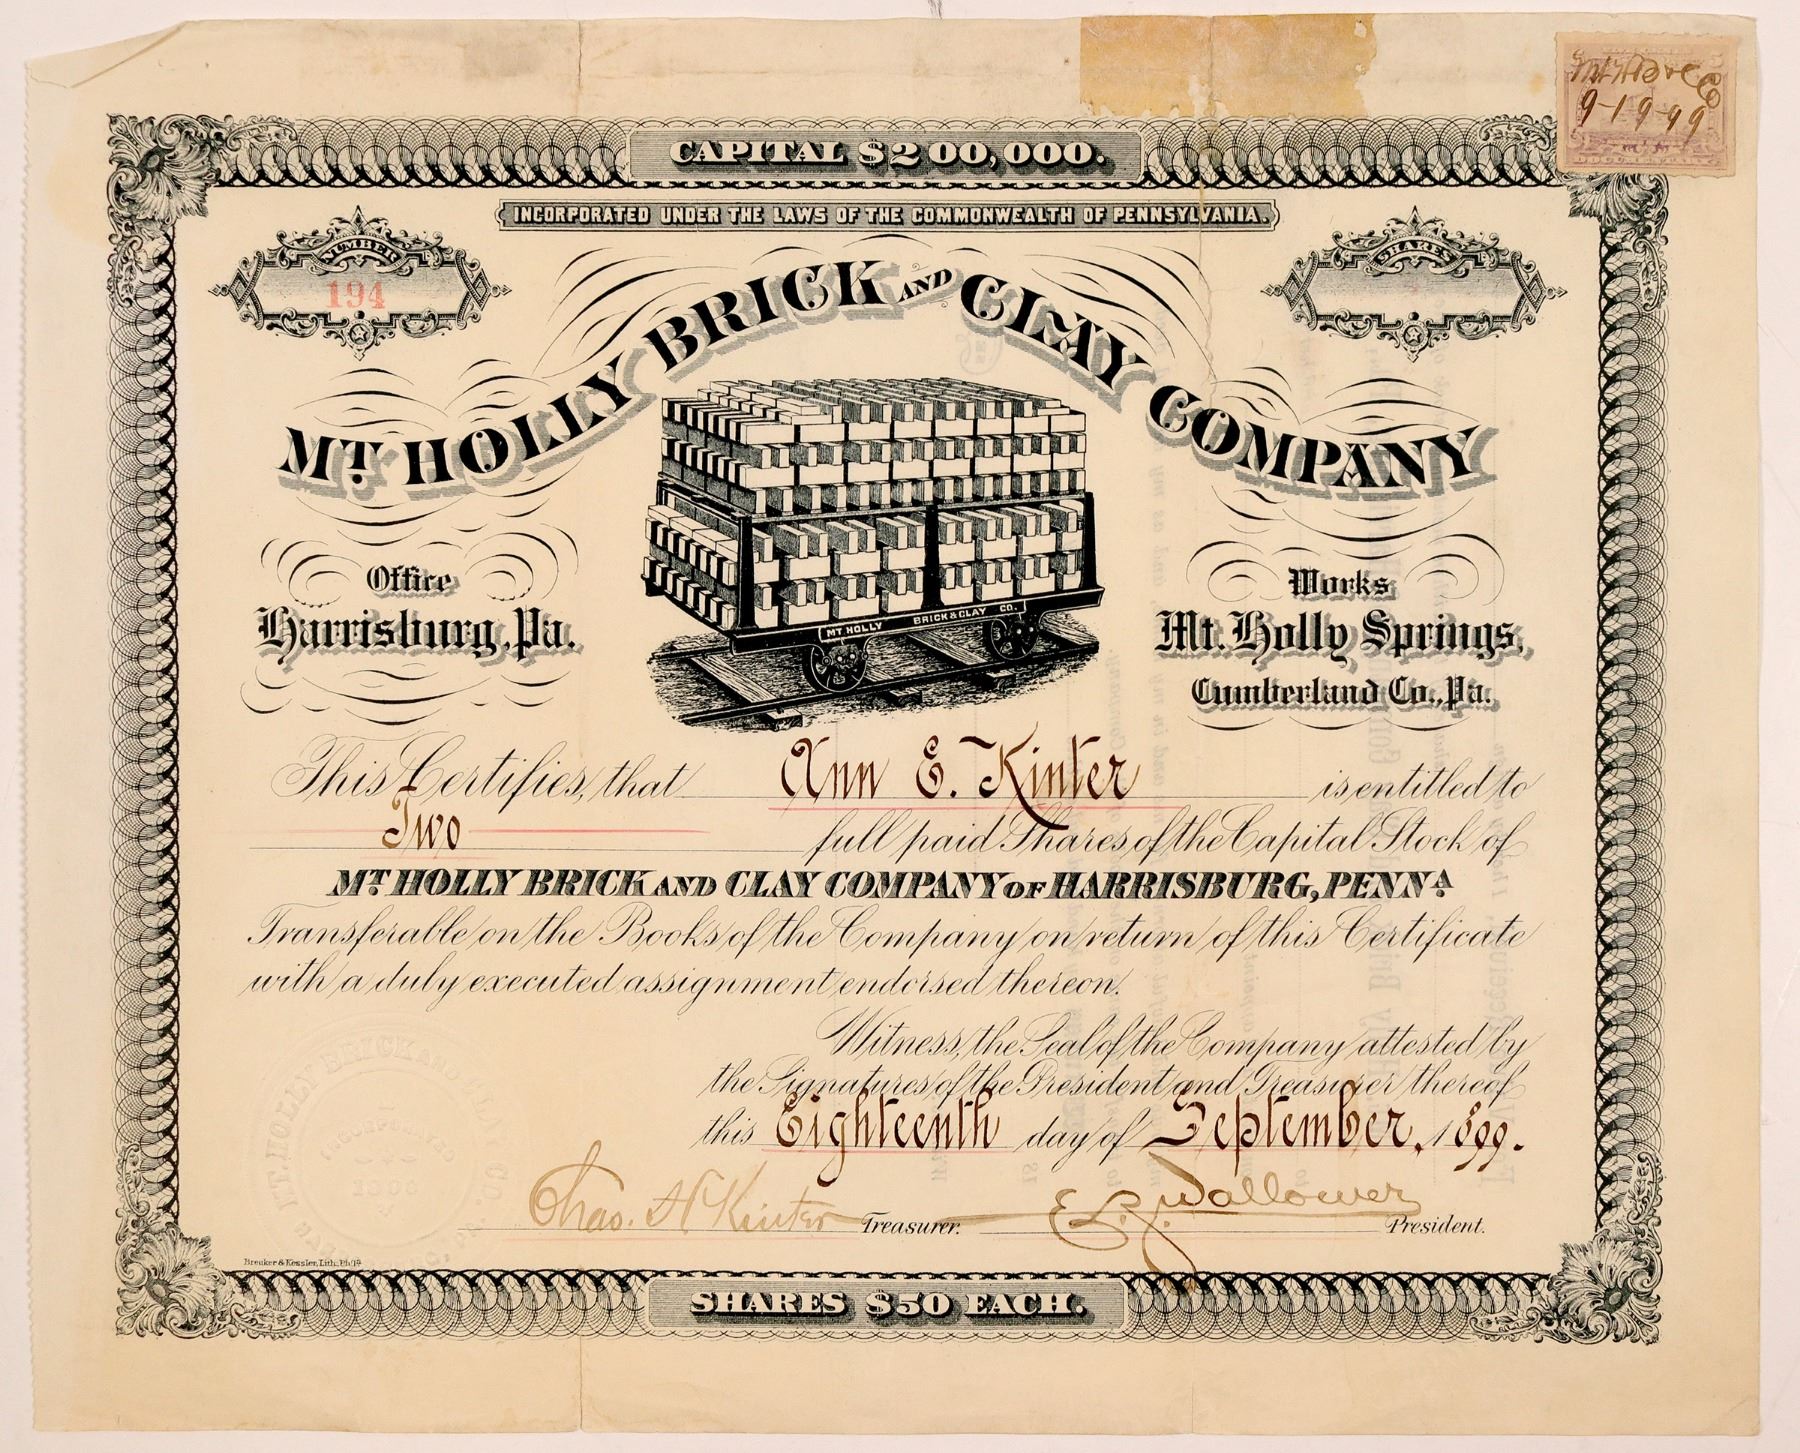 CAPITAL $200,000.
9-19-99
DOCUMENTARY
INCORPORATED UNDER THE LAWS OF THE COMMONWEALTH OF PENNSYLVANIA.
NUMBER
194
SHARES
MT. HOLLY BRICK AND CLAY COMPANY
Office
Harrisburg, Pa.
Works
Mt. Holly Springs,
Cumberland Co., Pa.
MT HOLLY BRICK & CLAY CO.
This Certifies, that Ann E. Kinter is entitled to
Two full paid Shares of the Capital Stock of
MT. HOLLY BRICK AND CLAY COMPANY OF HARRISBURG, PENNA.
Transferable on the Books of the Company on return of this Certificate
with a duly executed assignment endorsed thereon.
Witness, the Seal of the Company attested by
the Signatures of the President and Treasurer thereof
this Eighteenth day of September, 1899.
Chas. H Kinter Treasurer. E. Z. Wallower President.
MT. HOLLY BRICK AND CLAY CO.
INCORPORATED
Breuker & Kessler, Lith. Phila
SHARES $50 EACH.